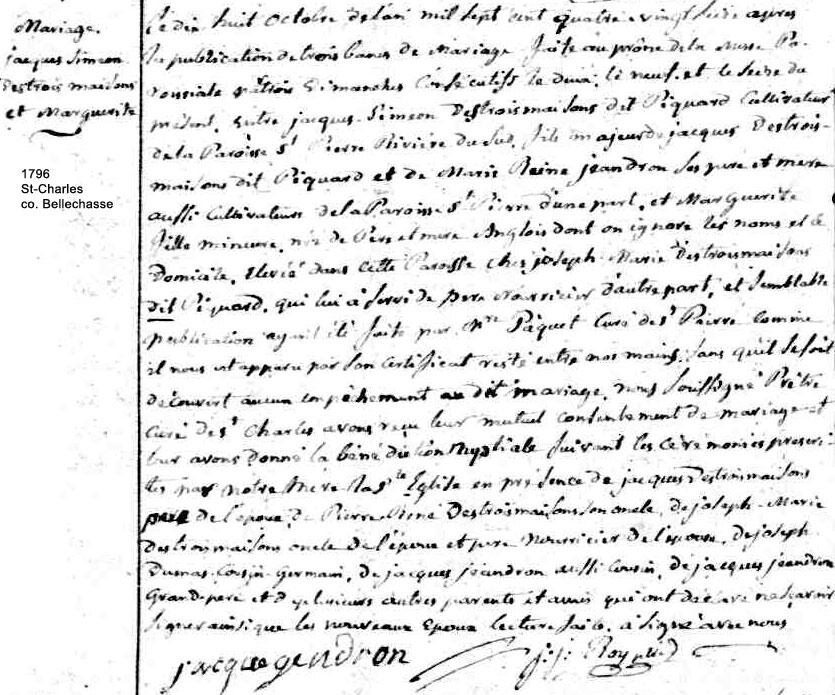 Mariage.
jacques Simeon
Destrois maisons
et Marguerite
1796
St-Charles
co. Bellechasse
Le dix huit Octobre de lan mil sept cent quatre vingt seize apres
la publication de trois bancs de Mariage faite au prône de la Messe Pa-
roissiale par trois Dimanches Consécutifs le deux, le neuf, et le seize du
présent, entre jacques Simeon Destroismaisons dit Piquard Cultivateur
de la Paroisse St Pierre Rivière du Sud, fils majeur de jacques Destrois-
maisons dit Piquard et de Marie Reine jeandron ses pere et mere
aussi Cultivateurs de la Paroisse St Pierre d'une part, et Marguerite
fille mineure, née de Pere et mere Anglois dont on ignore les noms et le
Domicile, élevée dans cette Paroisse chez joseph Marie Destroismaisons
dit Piquard, qui lui a servi de pere Nourricier d'autre part, et semblable
publication ayant été faite par Mre Paquet Curé de St Pierre comme
il nous est apparu par son Certificat resté entre nos mains, sans qu'il se soit
découvert aucun empêchement au dit mariage, nous soussigné Prêtre
Curé de St Charles avons reçu leur mutuel consentement de mariage et
leur avons donné la bénédiction Nuptiale suivant les cérémonies prescri-
tes par notre Mere la Ste Eglise en présence de jacques Destroismaisons
pere de l'époux, de Pierre Destroismaisons son oncle, de joseph Marie
destroismaisons oncle de l'époux et pere nourricier de l'épouse, de joseph
Dumas Cousin Germain, de jacques jeandron aussi Cousin, de jacques jeandron
Grand-pere et de plusieurs autres parents et amis qui ont déclaré ne scavoir
signer ainsi que les nouveaux Epoux lecture faite. a signé avec nous
jacque gendron
J. J. Roy